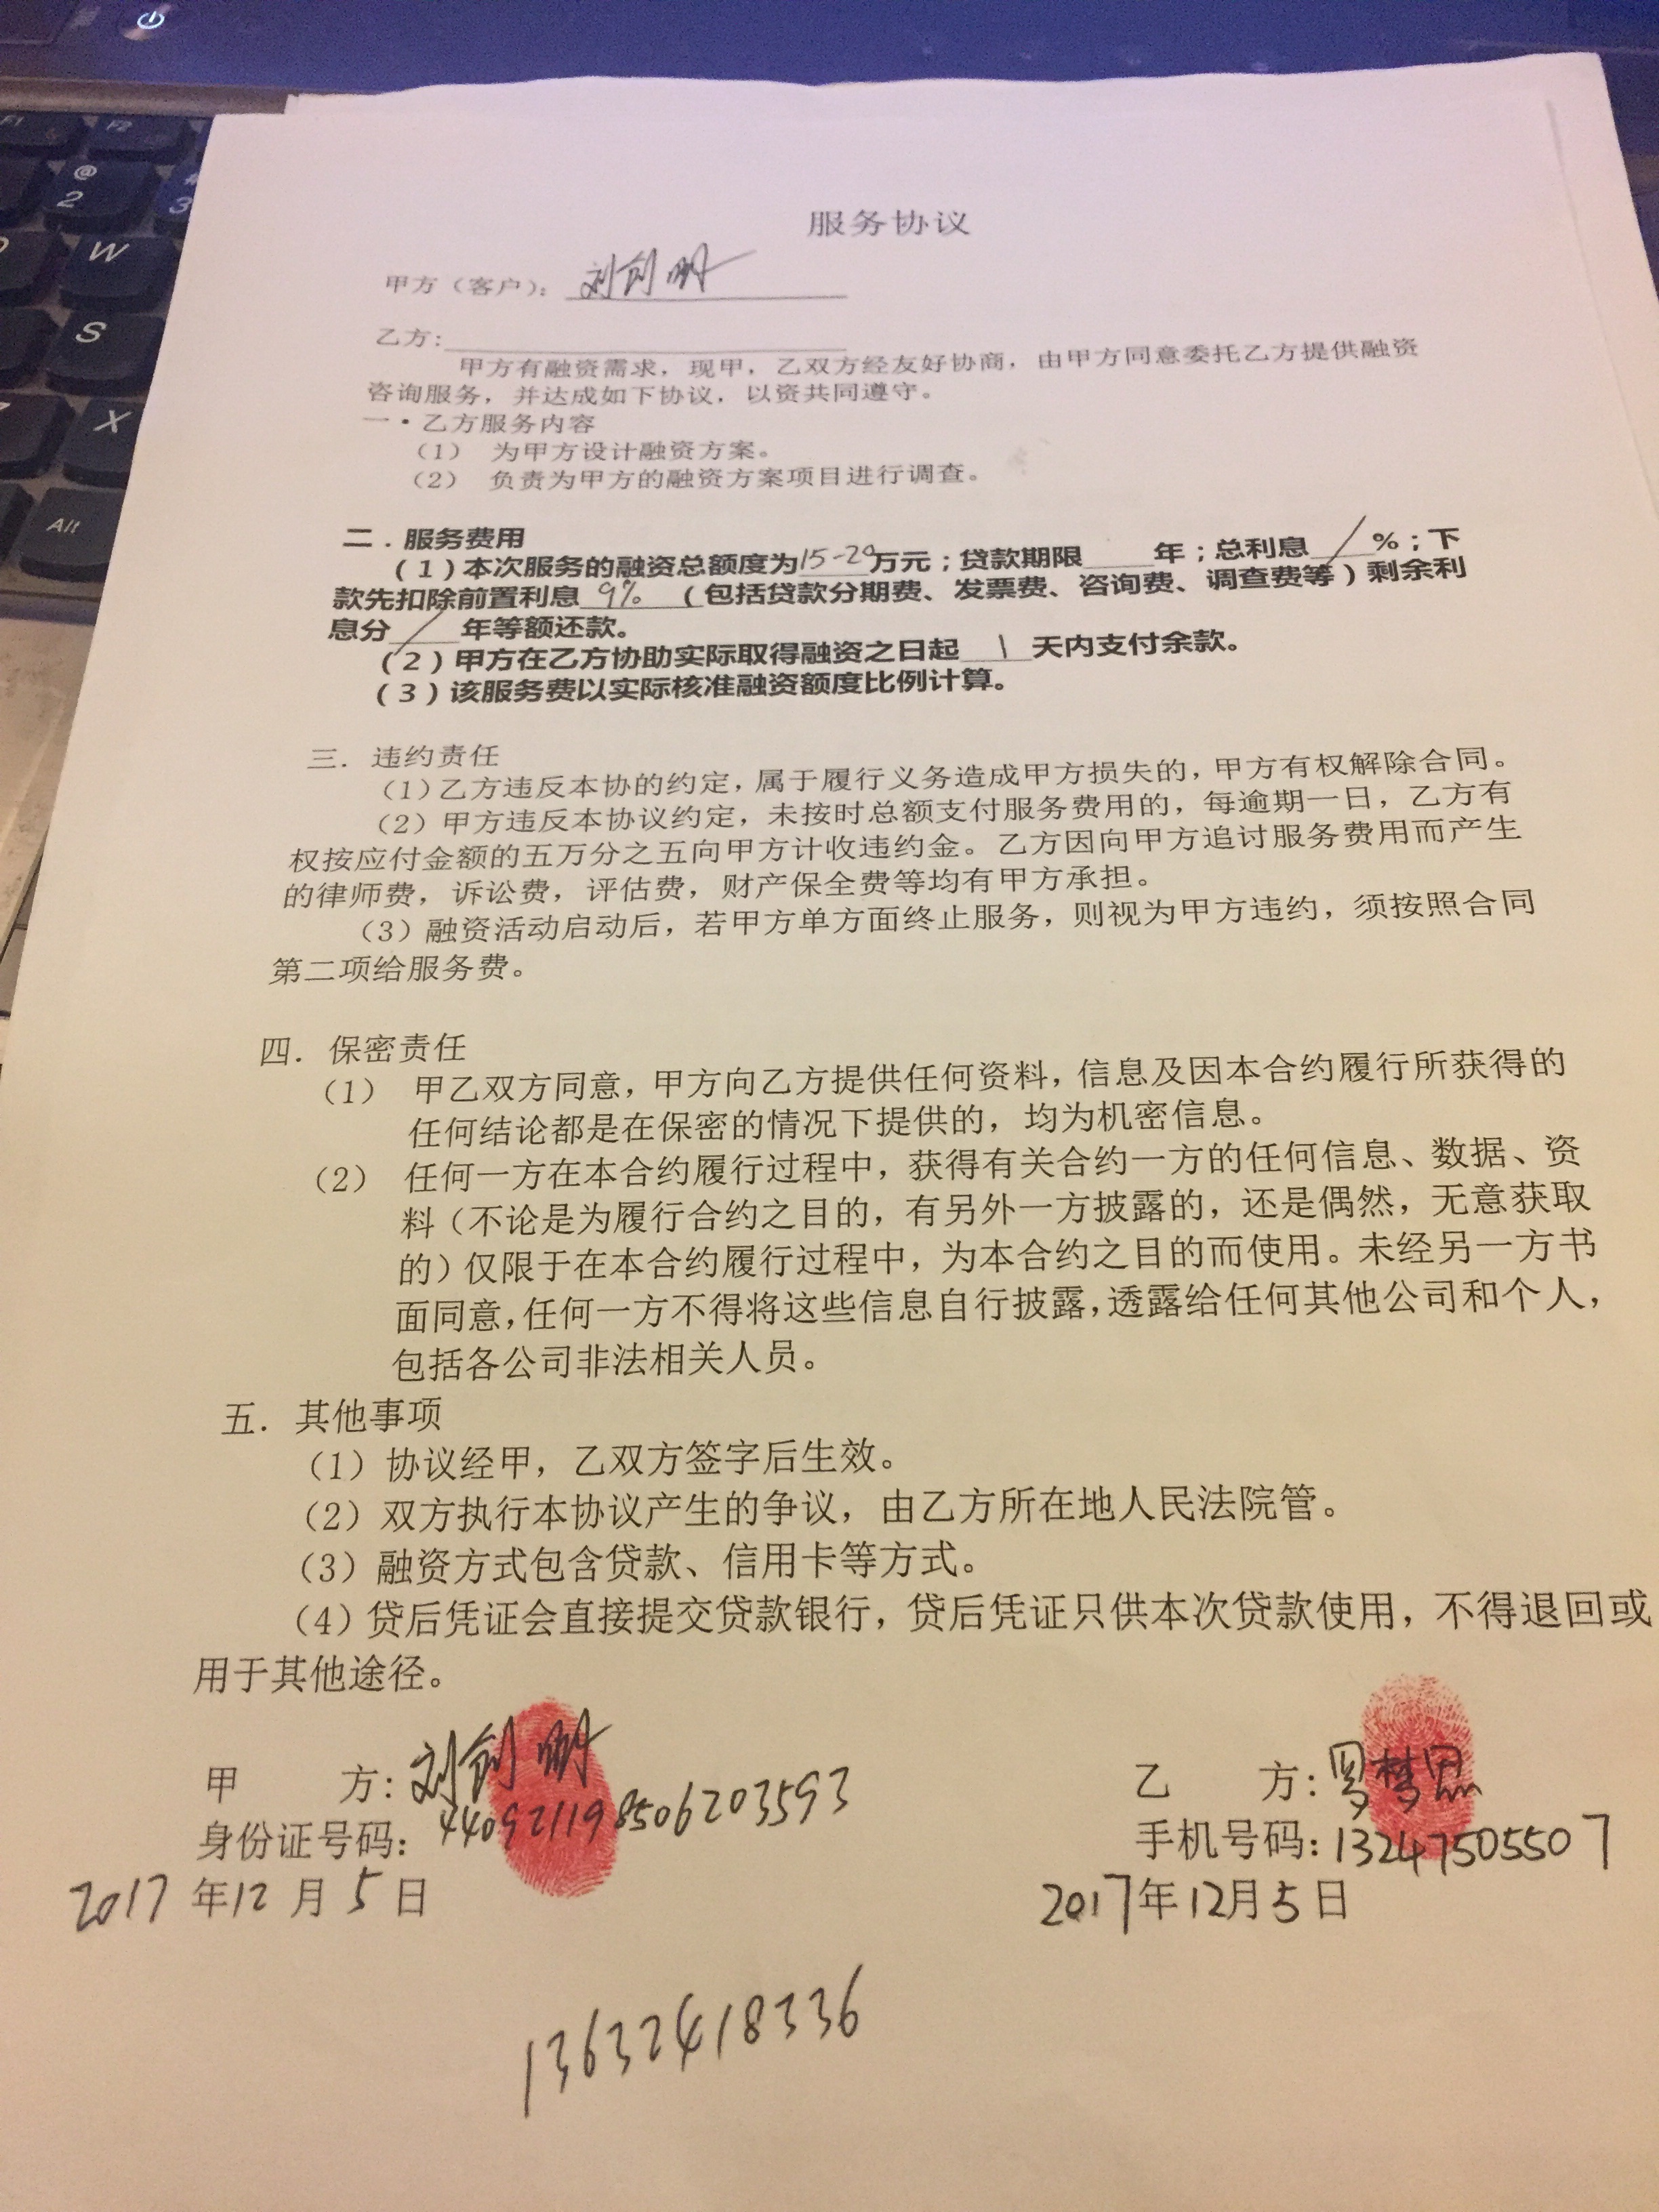 服务协议
甲方（客户）：刘剑明
乙方：
甲方有融资需求，现甲，乙双方经友好协商，由甲方同意委托乙方提供融资
咨询服务，并达成如下协议，以资共同遵守。
一·乙方服务内容
（1） 为甲方设计融资方案。
（2） 负责为甲方的融资方案项目进行调查。
二．服务费用
（1）本次服务的融资总额度为15-20万元；贷款期限 年；总利息 / %；下
款先扣除前置利息 9% （包括贷款分期费、发票费、咨询费、调查费等）剩余利
息分 / 年等额还款。
（2）甲方在乙方协助实际取得融资之日起 1 天内支付余款。
（3）该服务费以实际核准融资额度比例计算。
三．违约责任
（1）乙方违反本协的约定，属于履行义务造成甲方损失的，甲方有权解除合同。
（2）甲方违反本协议约定，未按时总额支付服务费用的，每逾期一日，乙方有
权按应付金额的五万分之五向甲方计收违约金。乙方因向甲方追讨服务费用而产生
的律师费，诉讼费，评估费，财产保全费等均有甲方承担。
（3）融资活动启动后，若甲方单方面终止服务，则视为甲方违约，须按照合同
第二项给服务费。
四．保密责任
（1） 甲乙双方同意，甲方向乙方提供任何资料，信息及因本合约履行所获得的
任何结论都是在保密的情况下提供的，均为机密信息。
（2） 任何一方在本合约履行过程中，获得有关合约一方的任何信息、数据、资
料（不论是为履行合约之目的，有另外一方披露的，还是偶然，无意获取
的）仅限于在本合约履行过程中，为本合约之目的而使用。未经另一方书
面同意，任何一方不得将这些信息自行披露，透露给任何其他公司和个人，
包括各公司非法相关人员。
五．其他事项
（1）协议经甲，乙双方签字后生效。
（2）双方执行本协议产生的争议，由乙方所在地人民法院管。
（3）融资方式包含贷款、信用卡等方式。
（4）贷后凭证会直接提交贷款银行，贷后凭证只供本次贷款使用，不得退回或
用于其他途径。
甲 方：刘剑明 乙 方：罗梦恩
身份证号码：440921198506203593 手机号码：13247505507
2017年12月5日 2017年12月5日
13632418336
F1 F2
@ 2 # 3
W
S
X
Alt